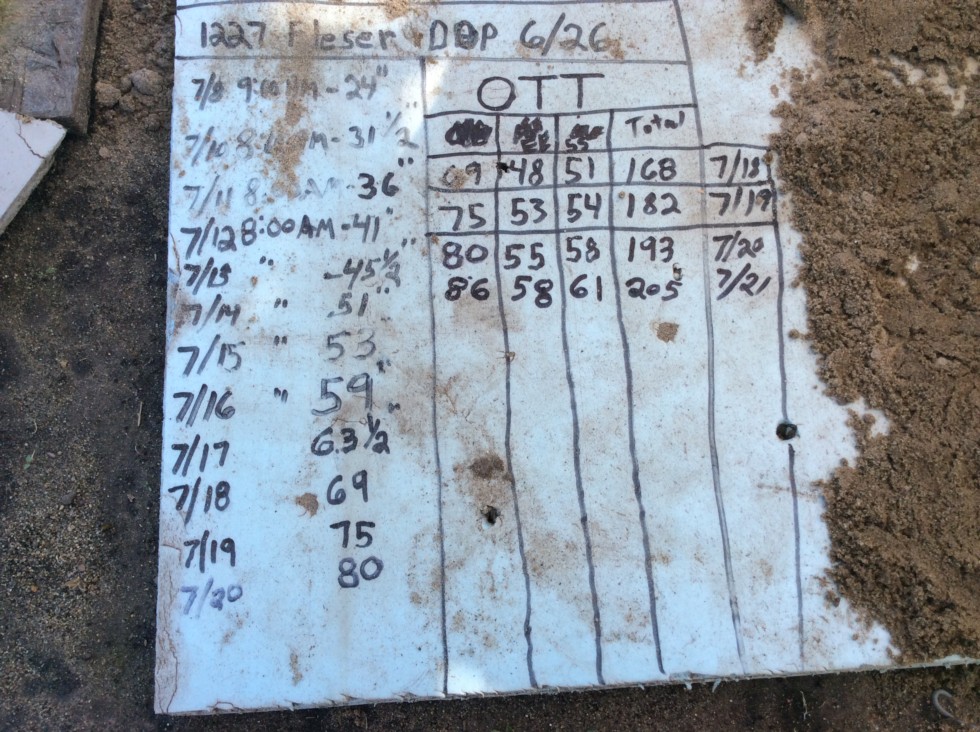 1227 Fleser DOP 6/26
7/8 9:00AM-24"
7/10 8:00AM-31 1/2"
7/11 8:00AM-36"
7/12 8:00AM-41"
7/13 " -45 1/2"
7/14 " 51"
7/15 " 53"
7/16 " 59"
7/17 63 1/2"
7/18 69
7/19 75
7/20 80
OTT
55 Total
69 48 51 168 7/18
75 53 54 182 7/19
80 55 58 193 7/20
86 58 61 205 7/21